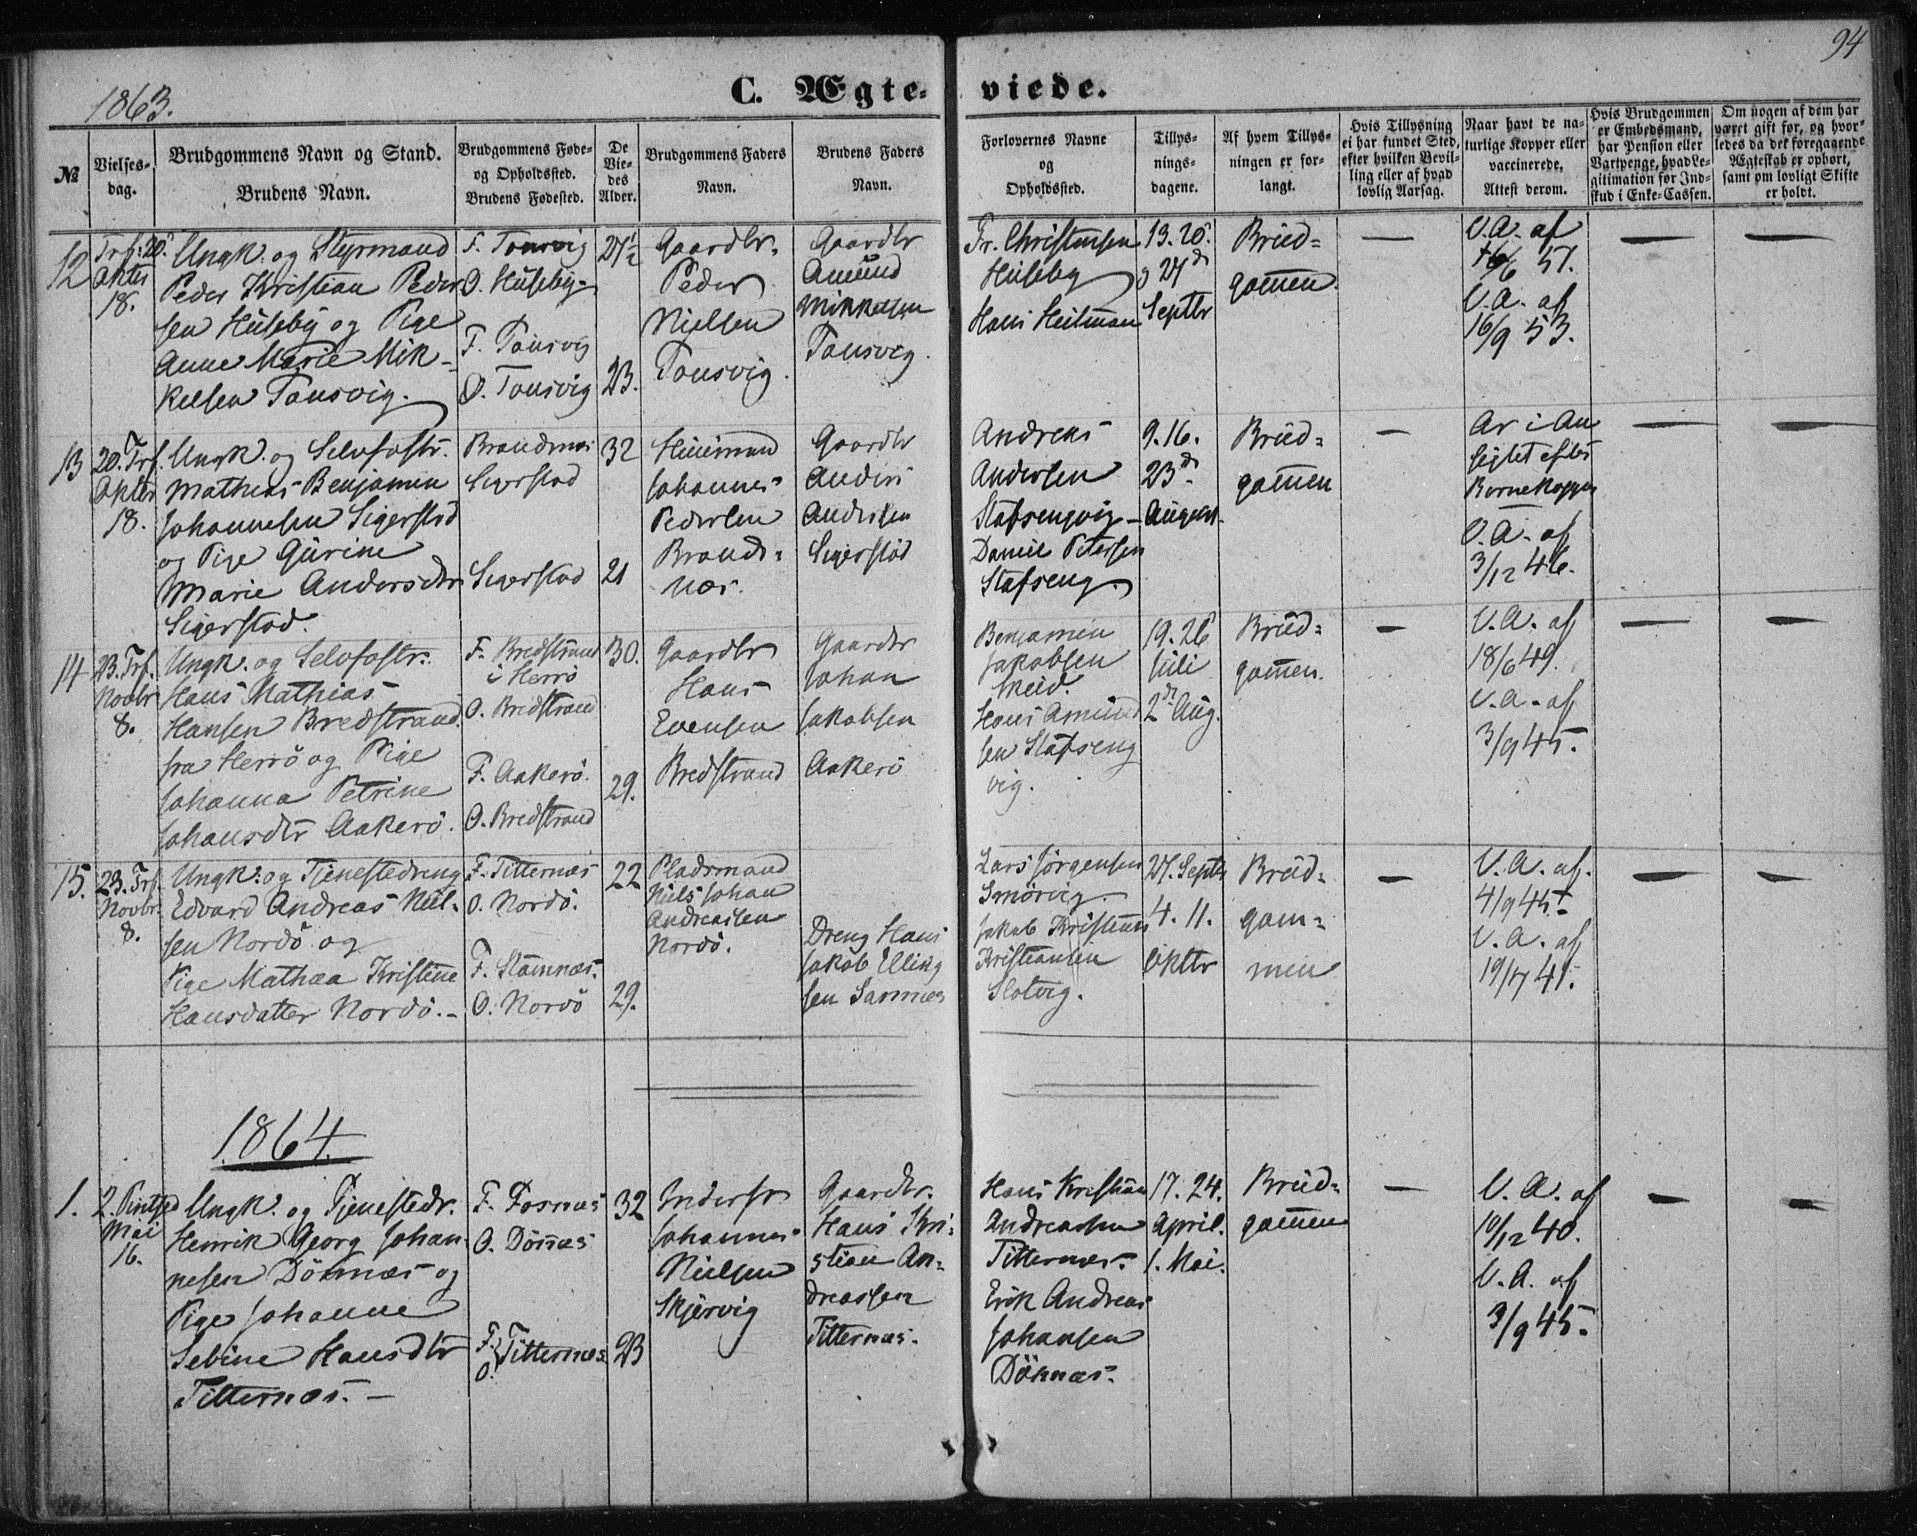 94
1863.
C. Ægte- viede.
№
Vielses-
dag.
Brudgommens Navn og Stand.
Brudens Navn.
Brudgommens Føde-
og Opholdssted.
Brudens Fødested.
De
Vie-
des
Alder.
Brudgommens Faders
Navn.
Brudens Faders
Navn.
Forlovernes Navne
og
Opholdssted.
Tillys-
nings-
dagene.
Af hvem Tillys-
ningen er for-
langt.
Hvis Tillysning
ei har fundet Sted,
efter hvilken Bevil-
ling eller af hvad
lovlig Aarsag.
Naar havt de na-
turlige Kopper eller
vaccinerede,
Attest derom.
Hvis Brudgommen
er Embedsmand,
har Pension eller
Vartpenge, hvad Le-
gitimation for Ind-
skud i Enke-Cassen.
Om nogen af dem har
været gift før, og hvor-
ledes da det foregaaende
Ægteskab er ophørt,
samt om lovligt Skifte
er holdt.
12
Trf. 20.
Okter
18.
Ungk. og Styrmand
Peder Kristian Peder
sen Huseby og Pige
Anne Marie Mik-
kelsen Tonsvig.
F. Tonsvig
O. Huseby
F. Tonsvig
O. Tonsvig
27½
23.
Gaardbr.
Peder
Nielsen
Tonsvig.
Gaardbr
Amund
Mikkelsen
Tonsvig.
Fr. Christensen
Huseby
Hans Heitman
13. 20.
27d
Septbr
Brud-
gommen.
—
V. A. af
16/6 57.
V. A. af
16/9 53.
—
—
13
20. Trf.
Okter
18.
Ungk. og Selvfostr.
Mathias Benjamin
Johannesen Sigerstad
og Pige Gurine
Marie Andersdtr
Sigerstad.
Brandsnæs
Sigerstad
Sigerstad
32
21
Huusmand
Johannes
Pedersen
Brands-
næs.
Gaardbr
Anders
Andersen
Sigerstad
Andreas
Andersen
Stafsengvig
Daniel Petersen
Stafseng.
9. 16.
23d
August.
Brud-
gommen
—
Ar i An
sigtet efter
Bornekopper
V. A. af
3/12 46.
—
—
14
23. Trf.
Novbr
8.
Ungk. og Selvfostr.
Hans Mathias
Hansen Bredstrand
fra Herrö og Pige
Johanna Petrine
Johansdtr Aakerö.
F. Bredstrand
i Herrö
O. Bredstrand
F. Aakerö.
O. Bredstrand
30.
29.
Gaardbr
Hans
Evensen
Bredstrand
Gaardbr
Johan
Jakobsen
Aakerö
Benjamin
Jakobsen
Hans Amund
sen Stafseng
vig.
19. 26
Juli
2d Aug.
Brud-
gommen.
—
V. A. af
18/6 49.
V. A. af
3/9 45.
—
—
15.
23. Trf.
Novbr.
8.
Ungk. og Tjenestedreng
Edvard Andreas Niel-
sen Nordö og
Pige Mathea Kristine
Hansdatter Nordö.-
F. Titternæs
O. Nordö.
F. Stamnæs.
O. Nordö
22
29.
Pladsmand
Niels Johan
Andreassen
Nordö.
Dreng Hans
Jakob Elling
sen Samnæs
Lars Jörgensen
Smörvig.
Jakob Kristians
Kristiansen
Slotvig.
27. Septr
4. 11.
Oktbr
Brud-
gom-
men
—
V. A. af.
4/9 45.
V. A. af
19/7 41.
—
—
1864.
1.
2. Pintsed
Mai
16.
Ungk. og Tjenestedr.
Henrik Georg Johan-
nesen Dönnæs og
Pige Johanne
Sebine Hansdtr
Titternæs. —
F. Fosnæs
O. Dönnæs
F.
O. Titternæs
32
23
Inderst
Johannes
Nielsen
Skjervig
Gaardbr.
Hans Kri-
stian An-
dreassen
Titternæs.
Hans Kristian
Andreassen
Titternæs.
Erik Andreas
Johansen
Dönnæs.
17. 24.
April.
1. Mai.
Brud-
gommen
—
V. A. af
10/12 40.
V. A. af
3/9 45.
—
—